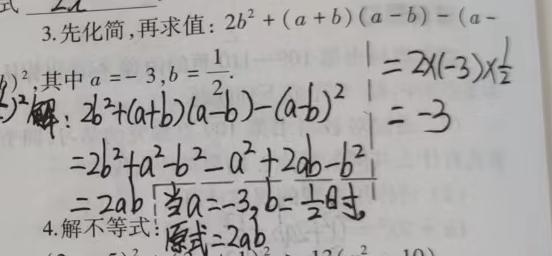 3.先化简,再求值: 2b² + (a + b)(a - b) - (a -
)²,其中 a = - 3, b = 1/2.
解: 2b²+(a+b)(a-b)-(a-b)²
=2b²+a²-b²-a²+2ab-b²
=2ab 当a=-3,b=1/2时。
原式=2ab
=2×(-3)×1/2
=-3
4.解不等式: